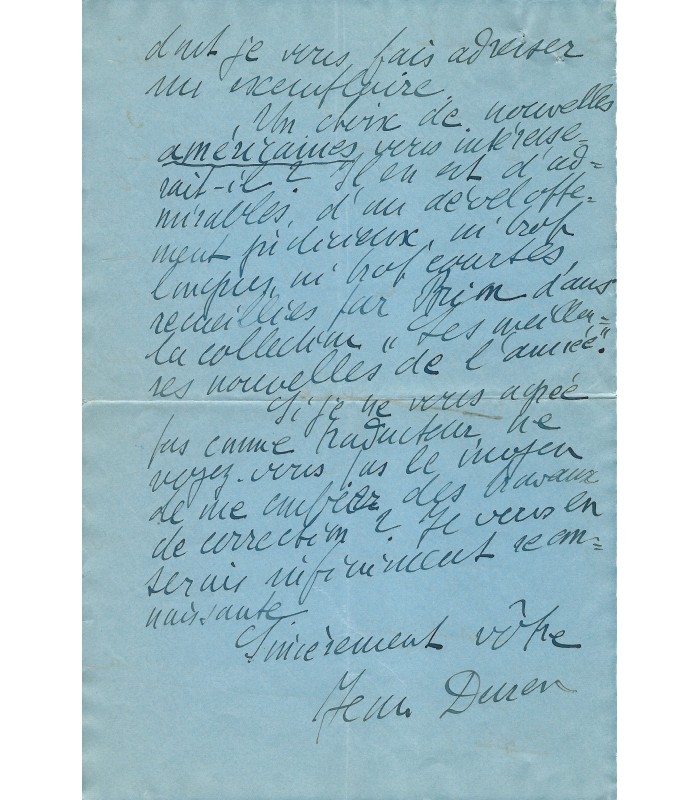 dont je vous fais adresser
un exemplaire.
Un choix de nouvelles
américaines vous intéresse-
rait-il ? Il en est d'ad-
mirables, d'un développe-
ment judicieux, ni trop
longues, ni trop courtes,
recueillies par dans
la collection "Les meilleu=
res nouvelles de l'année".
Si je ne vous agrée
pas comme traducteur, ne
voyez-vous pas le moyen
de me confier des travaux
de correction ? Je vous en
serais infiniment recon=
naissante.
Sincèrement vôtre